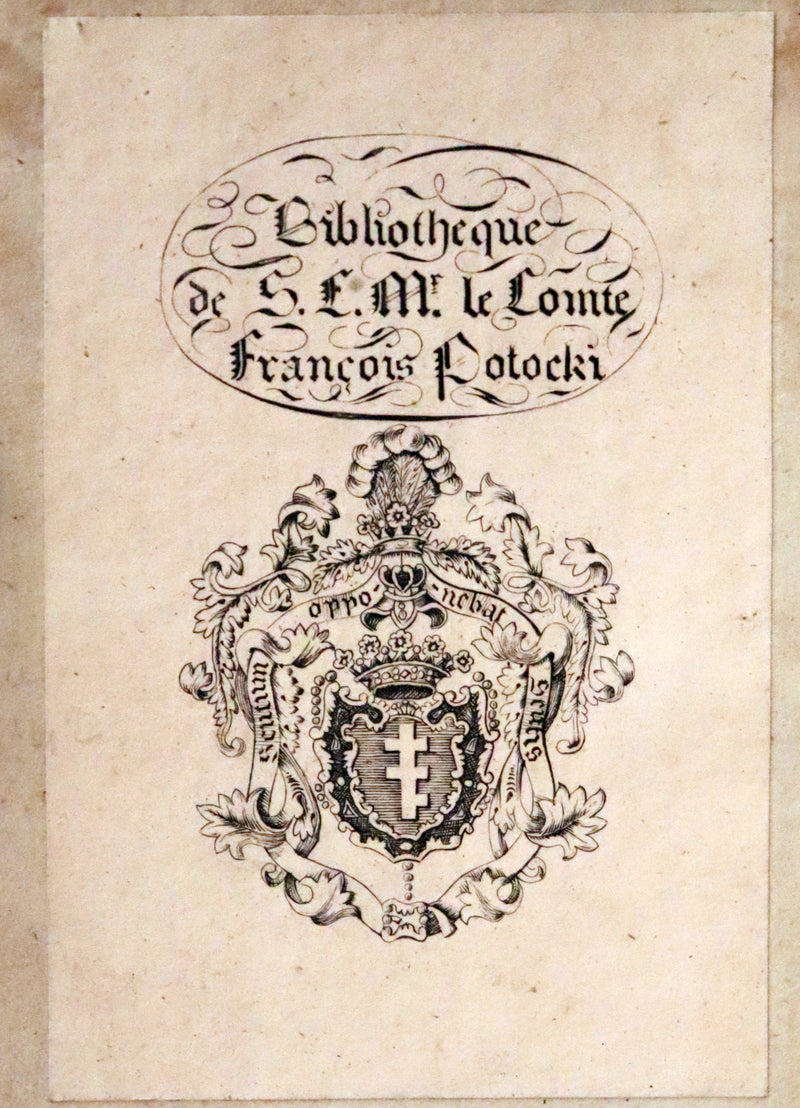 Bibliotheque
de S. E. Mr. le Comte
François Potocki
Scutum oppo-nebat Scutis